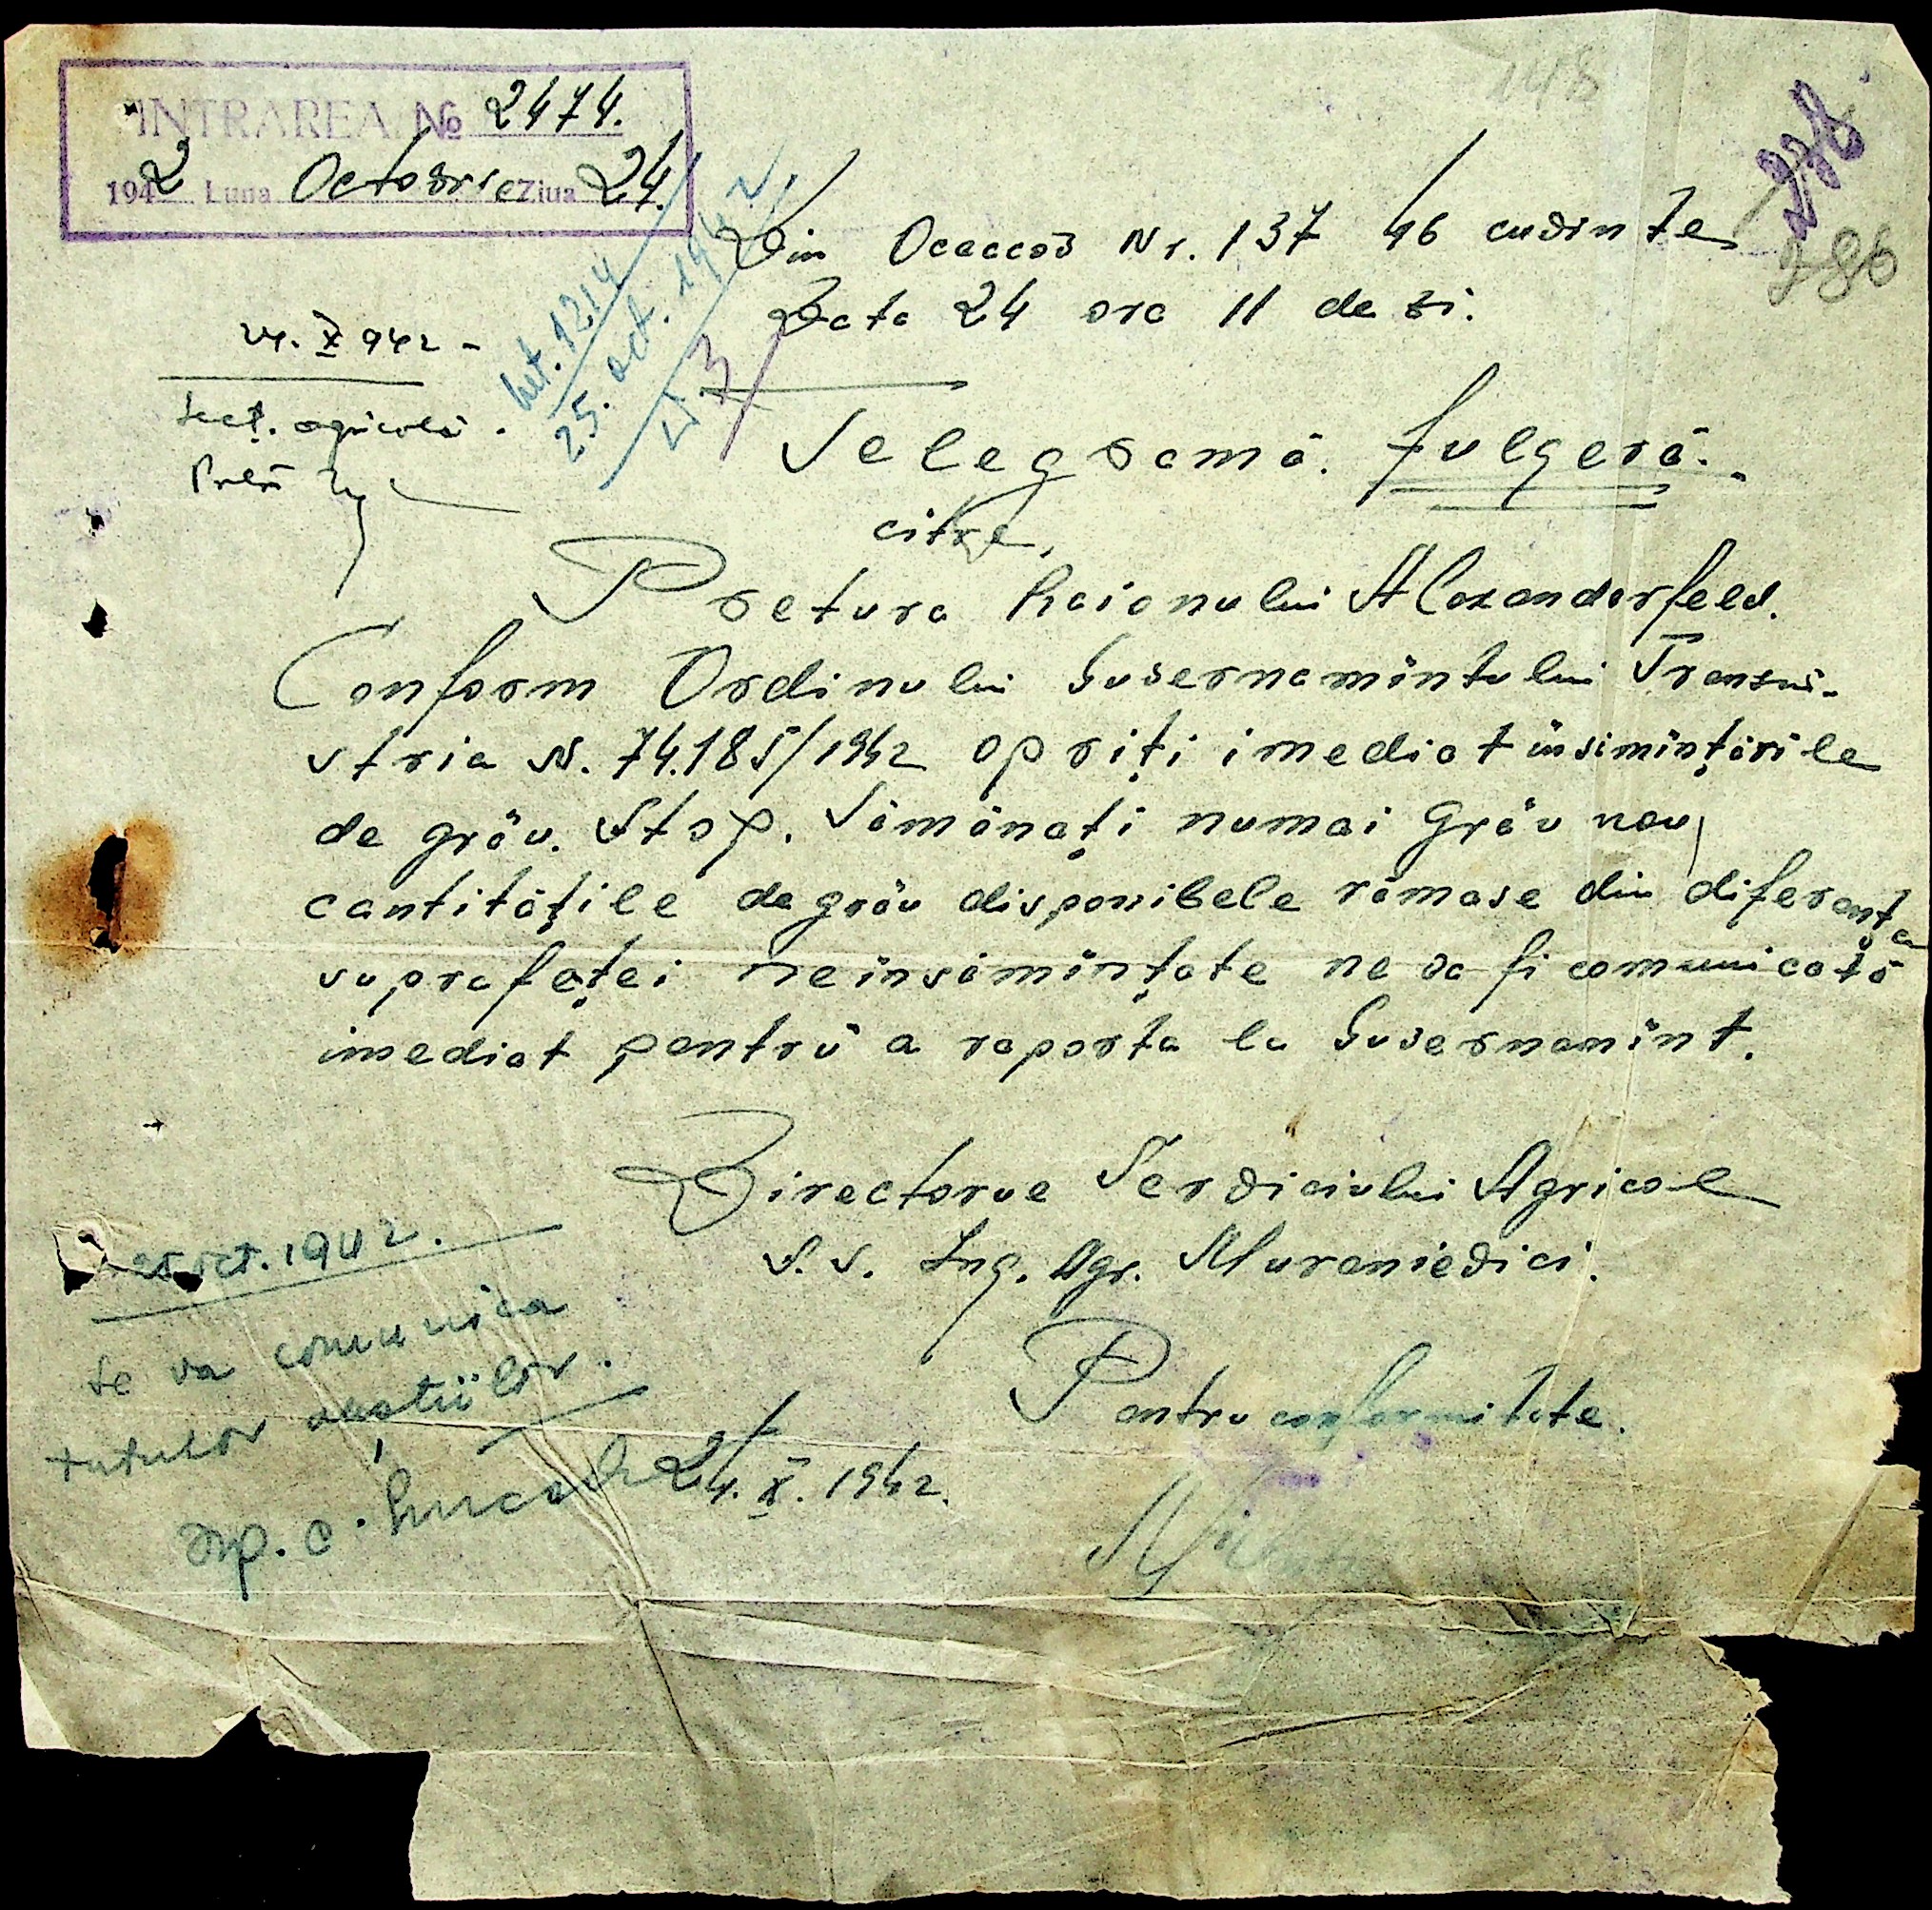 INTRAREA № 2474.
1942 Luna Octobrie Ziua 24.
148
386
Din Oceacov Nr. 137 46 cuvinte
Data 24 ora 11 de zi.
24. X 942 -
Sect. agricolă.
Int. 1214
25. oct. 1942
3
Telegramă. fulgeră.
cître,
Pretura Raionului Alexanderfeld.
Conform Ordinului Guvernamîntului Transni-
stria N. 74.185/1942 opriți imediat însimințările
de grâu. Stop. Sămănați numai Grâu nou,
cantitățile de grâu disponibele rămase din diferența
suprafeței neînsămințate ne va fi comunicată
imediat pentru a raporta la Guvernamînt.
Directorue Serviciului Agricol
S. S. Ing. Agr. Muraniedici.
25 oct. 1942.
Se va comunica
tutulor secțiilor.
Pentru conformitate.
24. X. 1942.